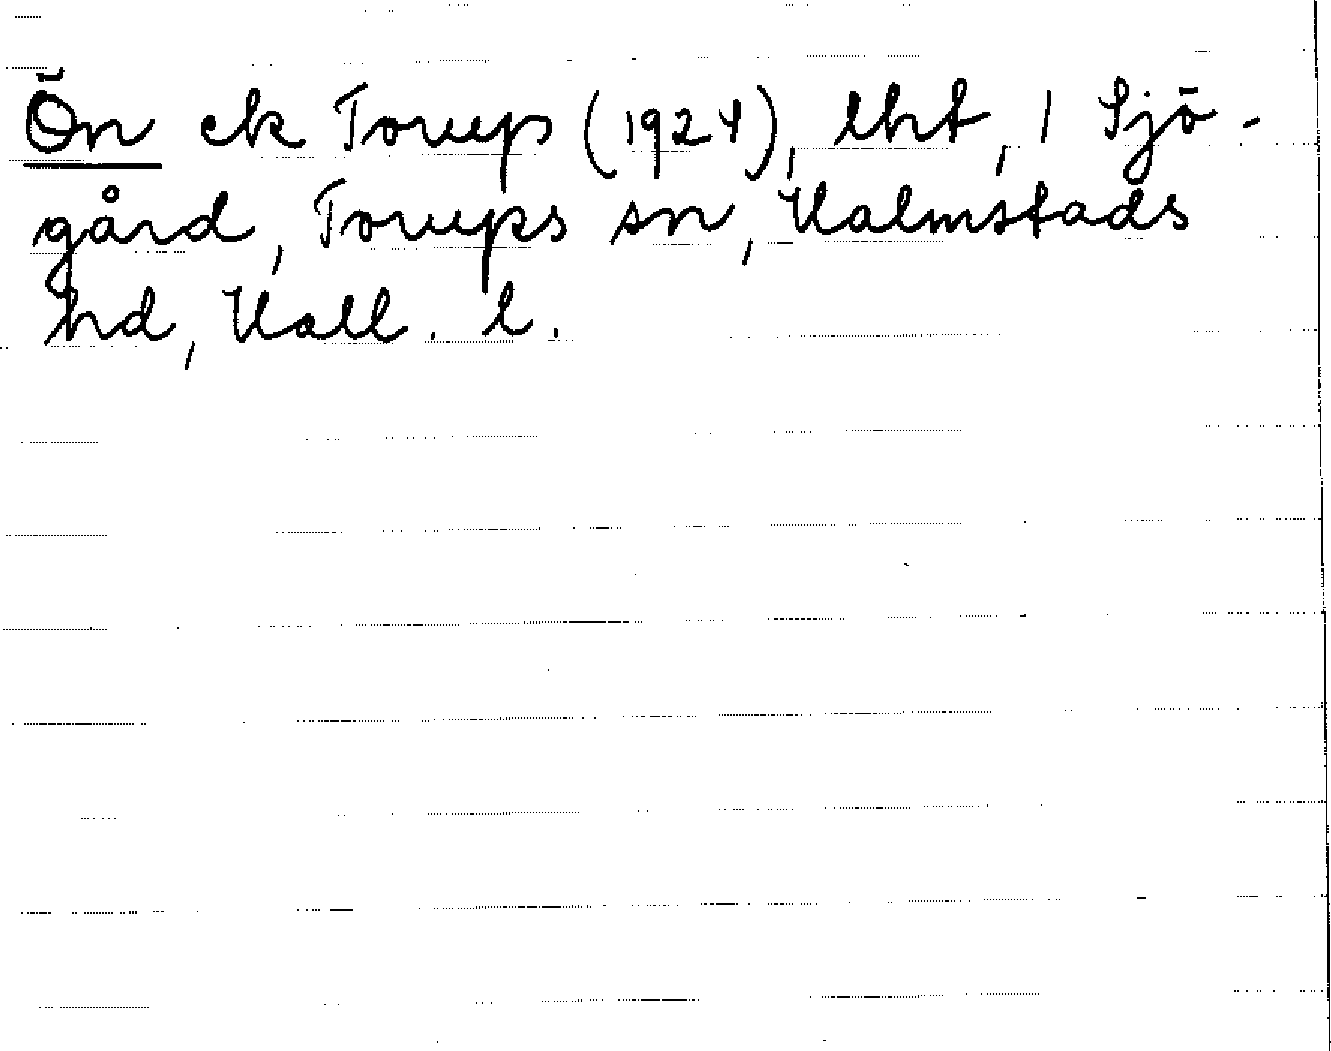 Ön ek Torup (1924), lht, 1 Sjö-
gård, Torups sn, Halmstads
hd, Hall. l.